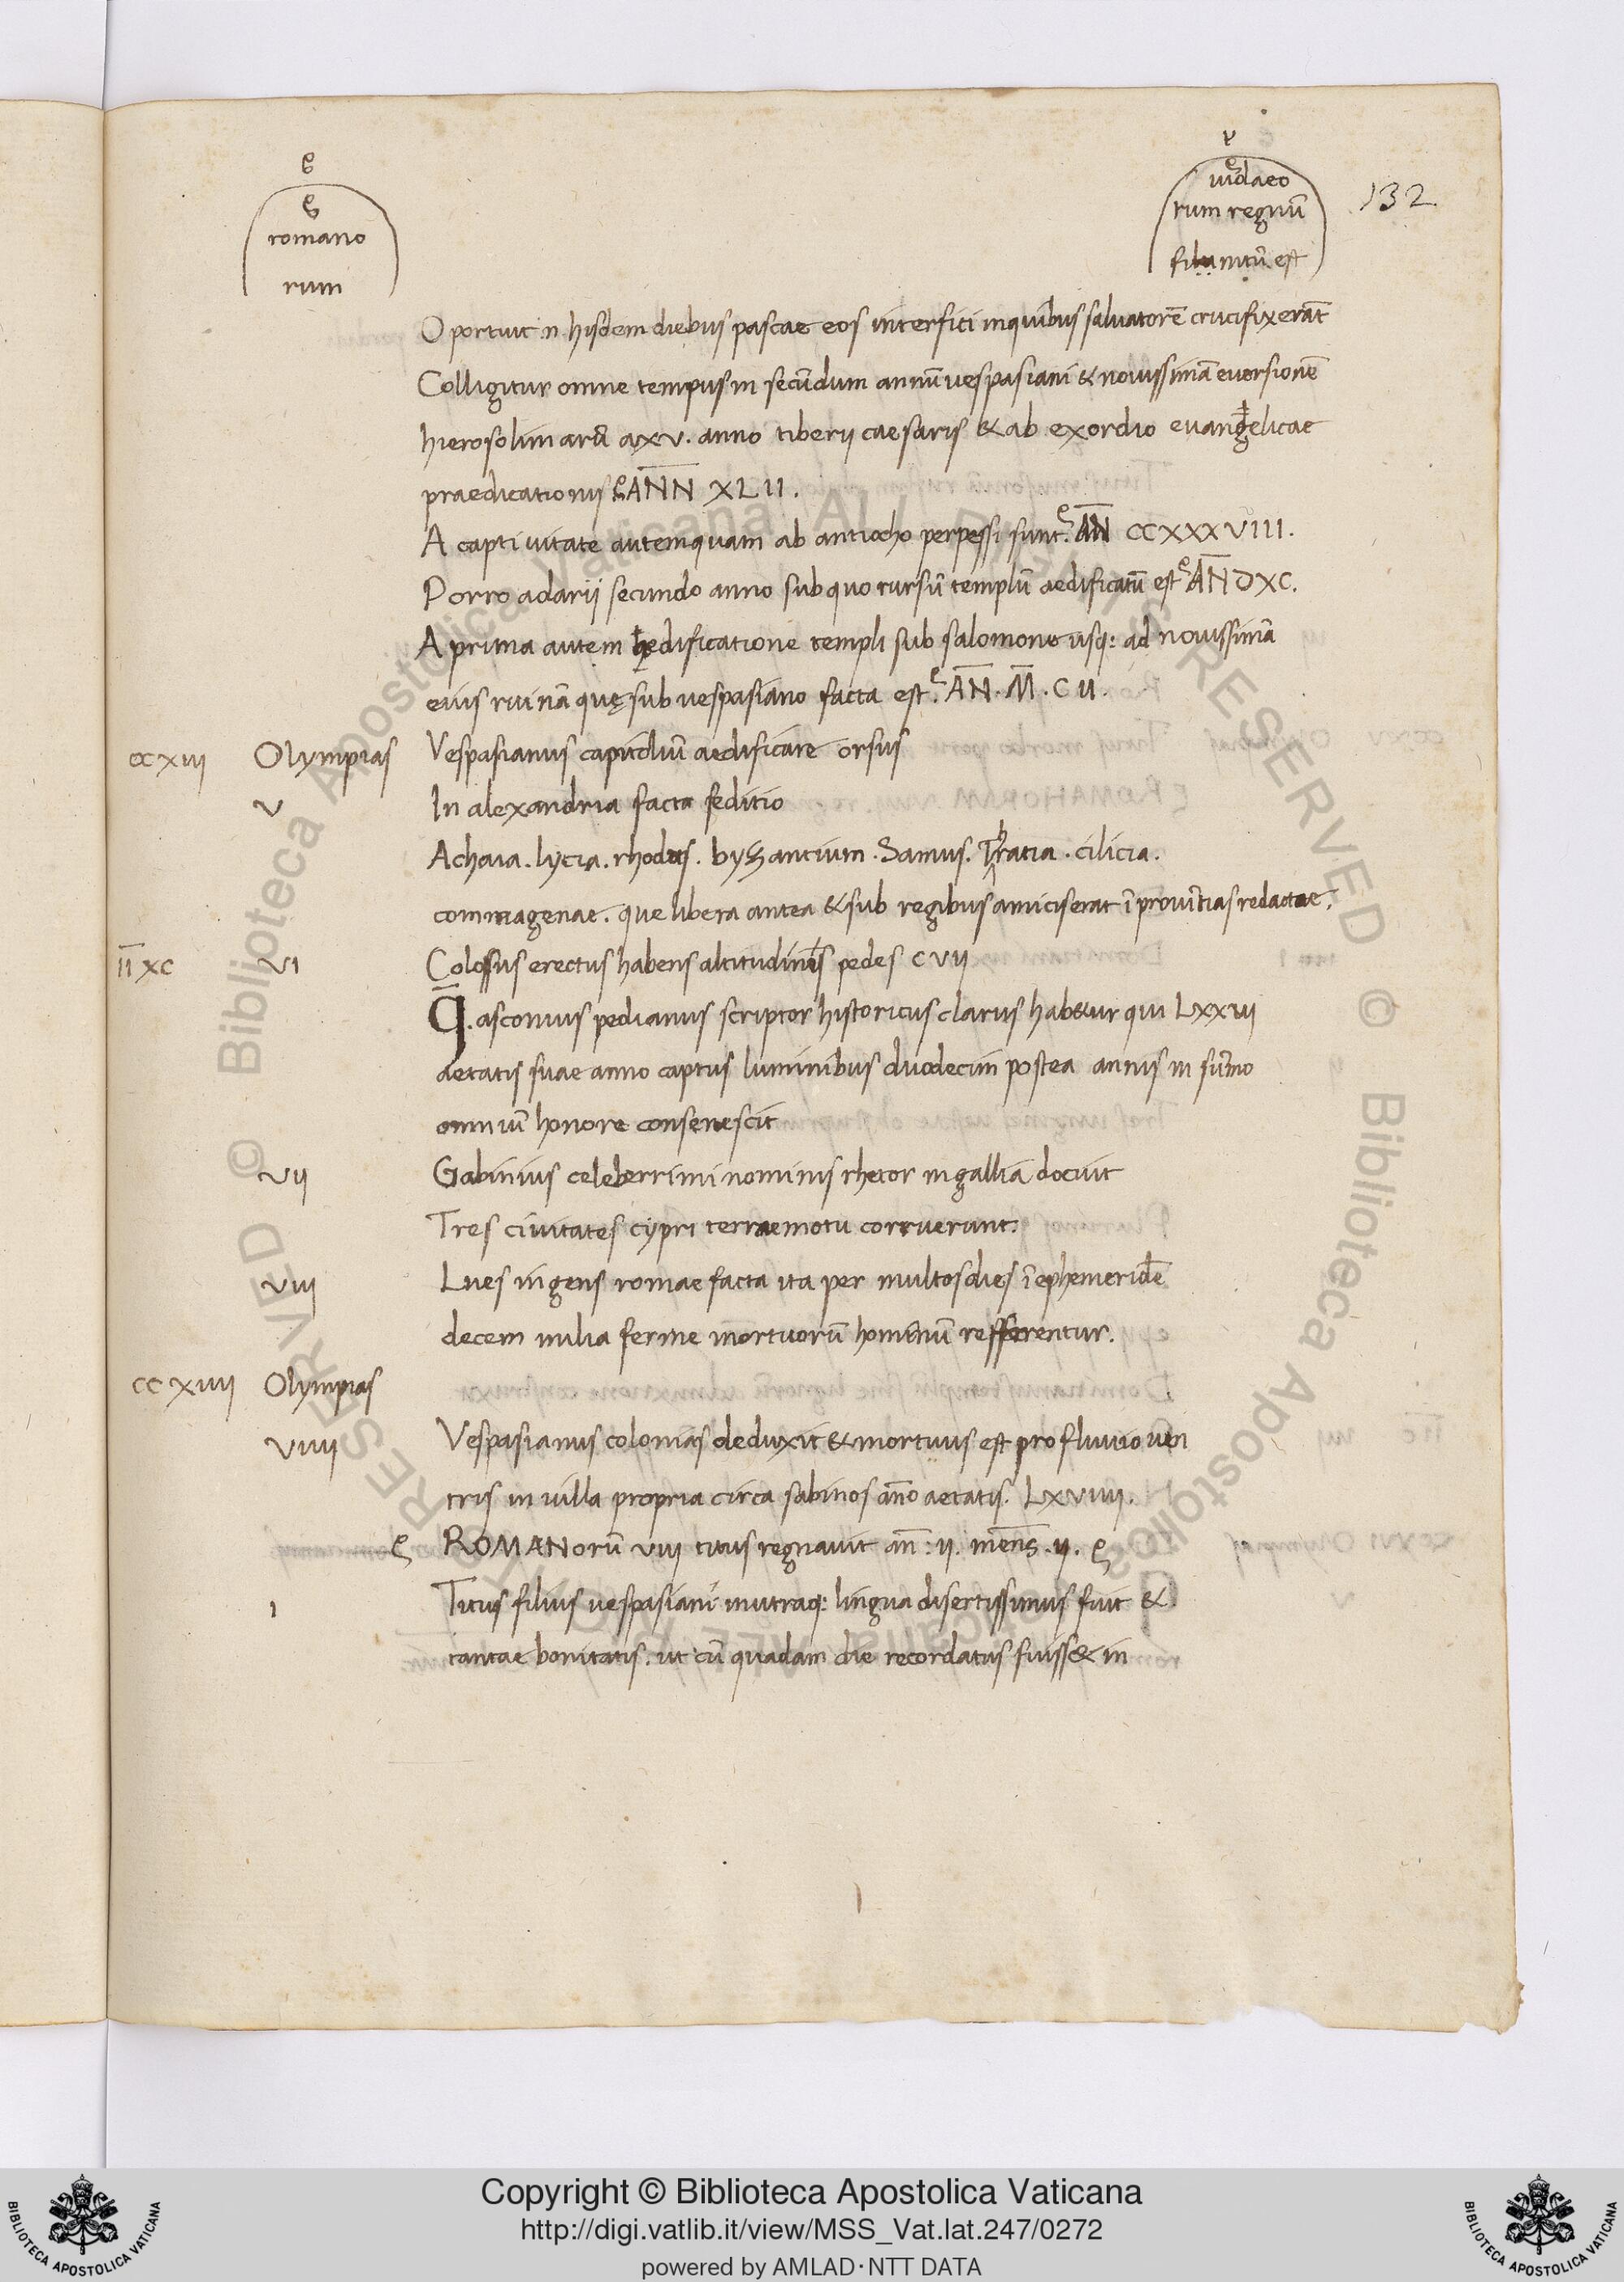 romano
rum
iudaeo
rum regnū
finitū est
132
Oportuit .n hisdem diebus pascae eos interfici inquibus saluatorē crucifixerāt
Colligitur omne tempus in secūdum annū uespasiani & nouissimā euersionē
hierosolimarū axv. anno tiberij caesaris & ab exordio euangelicae
praedicationis ANN XLII.
A captiuitate autem quam ab antiocho perpessi sunt. AN CCXXXVIII.
Porro adarij secundo anno sub quo rursū templū aedificatū est AN DXC.
A prima autem aedificatione templi sub salomone usq: ad nouissimā
eius ruinā quę sub uespasiano facta est. AN. M̄. C II.
CCXIII Olympias Vespasianus capitoliū aedificare orsus
V In alexandria facta seditio
Achaia. lycia. rhodus. byzantium. Samus. Thratia. cilicia.
commagenae. que libera antea & sub regibus amicis erat ī prouītias redactae.
II XC VI Colossus erectus habens altitudinis pedes CVII
Q. asconius pedianus scriptor historicus clarus hab&ur qui LXXIII
aetatis suae anno captus luminibus duodecim postea annis in sūmo
omniū honore consenescit
VII Gabinius celeberrimi nominis rhetor in galliā docuit
Tres ciuitates cypri terraemotu corruerunt.
VIII Lues ingens romae facta ita per multos dies ī ephemeridē
decem milia ferme mortuorū hominū refferentur.
CCXIIII Olympias
VIIII Vespasianus colonias deduxit & mortuus est profluuio uen
tris in uilla propria circa sabinos āno aetatis. LXVIIII.
ROMANorū VIII titus regnauit an̄: II. mens̄. II.
I Titus filius uespasiani inutraq: lingua disertissimus fuit &
tantae bonitatis. ut cū quadam die recordatus fuiss& in
Copyright © Biblioteca Apostolica Vaticana
http://digi.vatlib.it/view/MSS_Vat.lat.247/0272
powered by AMLAD·NTT DATA
BIBLIOTECA APOSTOLICA VATICANA
BIBLIOTECA APOSTOLICA VATICANA